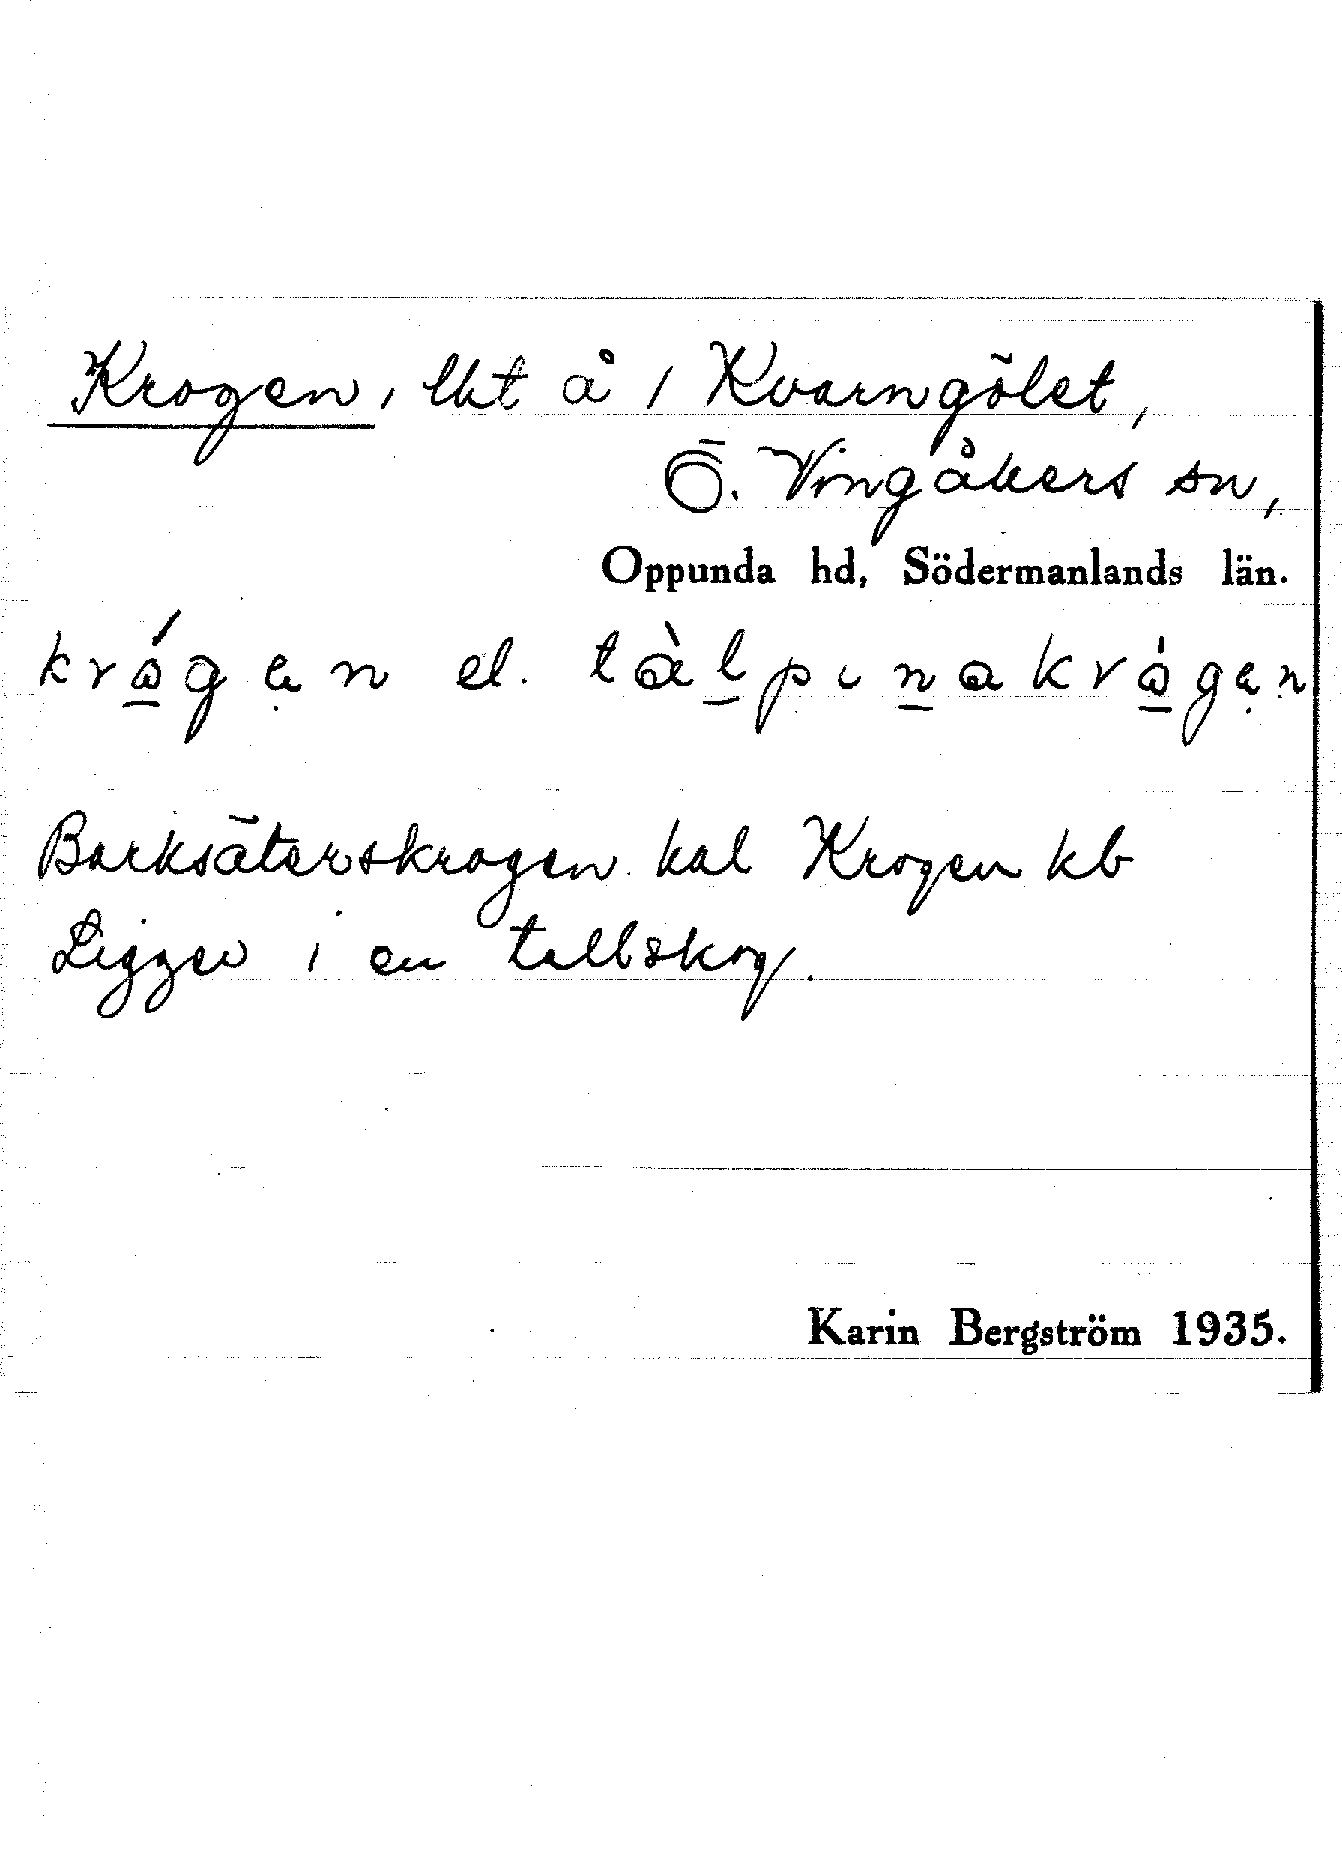 Krogen, lht å 1 Kvarngölet,
Ö. Vingåkers sn,
Oppunda hd, Södermanlands län.
krågən el. tàlpınakrågən
Barksäterskrogen kal Krogen kb
Ligger i en tallskog.
Karin Bergström 1935.